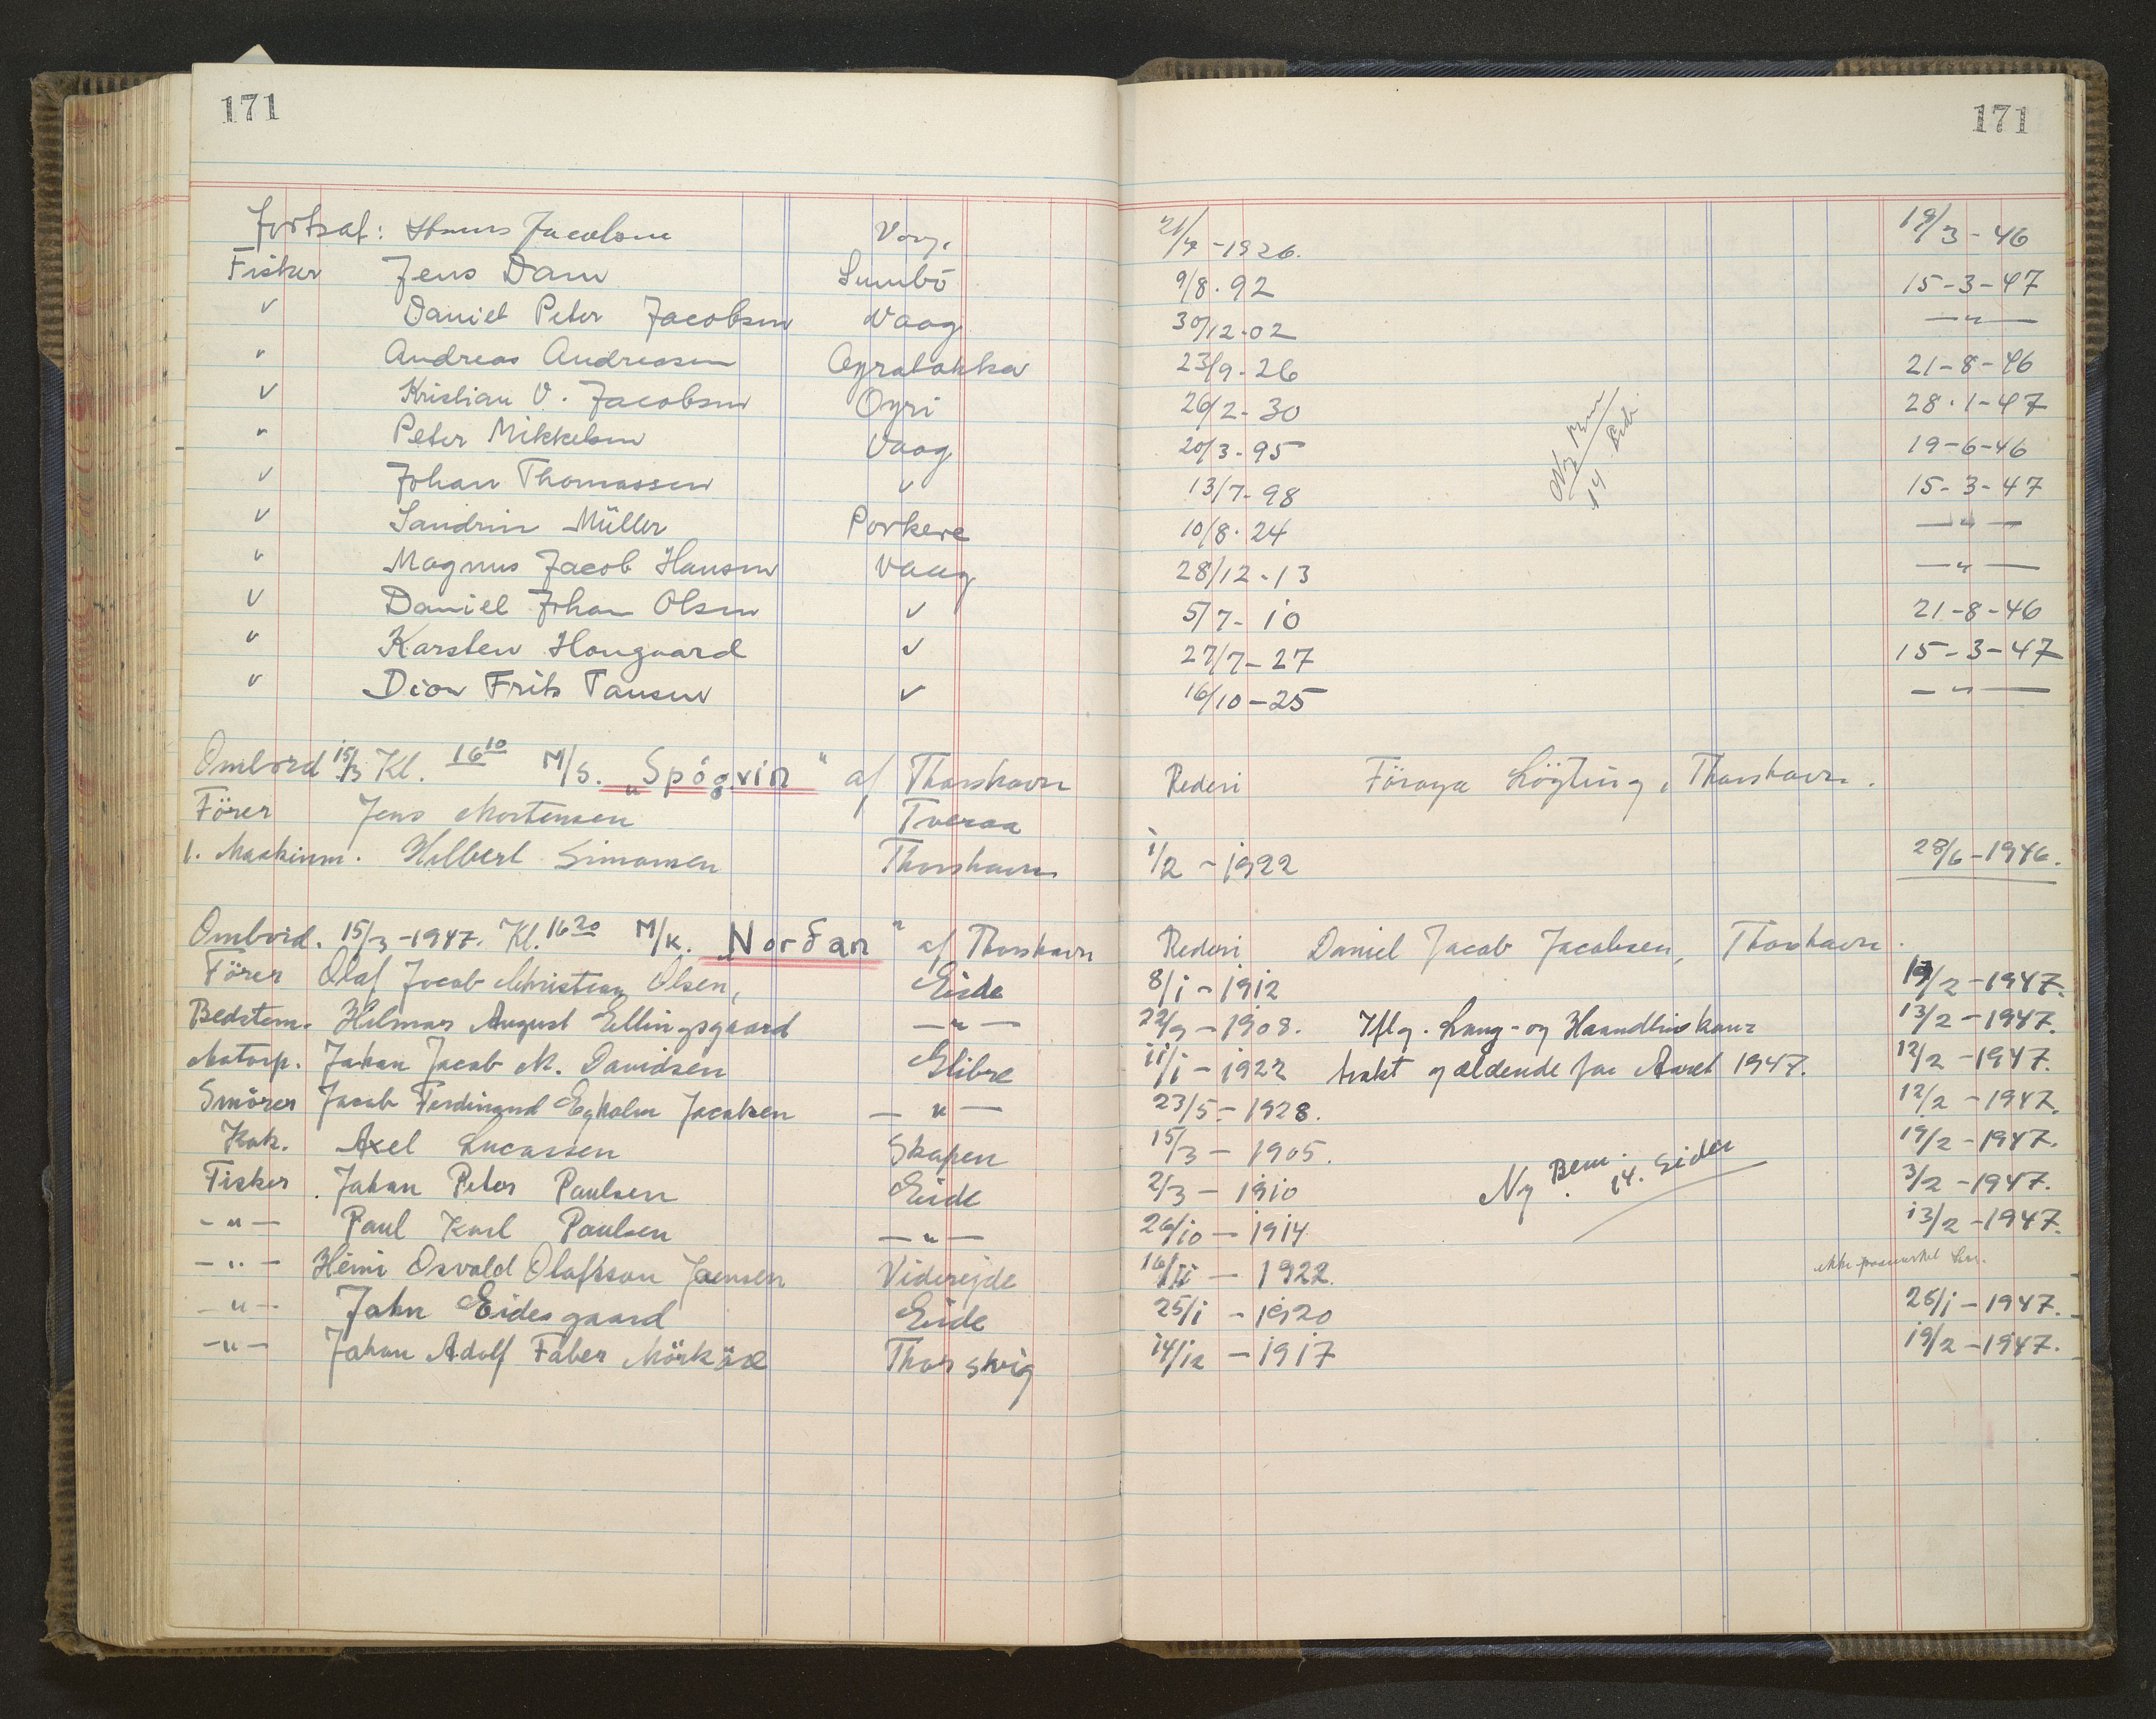 171
171
Fortsat: Hans Jacobsen Vaag. 21/7 - 1926. 19/3 - 46
Fisker Jens Dam Sumbö 9/8 - 92 15-3-47
" Daniel Peter Jacobsen Vaag 30/12-02 — " —
" Andreas Andreasen Oyrabakka 23/9-26 21-8-46
" Kristian V. Jacobsen Oyri 26/2-30 28-1-47
" Peter Mikkelsen Vaag 20/3-95 19-6-46
" Johan Thomassen " 13/7-98 15-3-47
Ny Bem 14
" Sandrin Müller Porkere 10/8-24 — " —
" Magnus Jacob Hansen Vaag 28/12-13 — " —
" Daniel Johan Olsen " 5/7-10 21-8-46
" Karsten Hougaard " 27/7-27 15-3-47
" Dion Frits Tausen " 16/10-25 — " —
Ombord 15/3 Kl. 16 10 M/S. "Spógvin" af Thorshavn Rederi Föroya Lögting, Thorshavn.
Förer Jens Mortensen Tveraa
1. Maskinm. Hilbert Simonsen Thorshavn 1/2 - 1922 28/6-1946.
Ombord. 15/3-1947. Kl. 16 20 M/K. "Norðan" af Thorshavn Rederi Daniel Jacob Jacobsen, Thorshavn.
Förer Olaf Jacob Christian Olsen, Eide 8/1 - 1912 19/2-1947.
Bedstem. Hilmar August Ellingsgaard — " — 22/9 - 1908. Iflg. Lang- og Haandlinekon= 13/2-1947.
Motorp. Johan Jacob M. Davidsen Glibre 11/1 - 1922 trakt gældende for Aaret 1947. 12/2-1947.
Smörer Jacob Ferdinand Egholm Jacobsen — " — 23/5 - 1928. 12/2-1947.
Kok. Axel Lucassen Skapen 15/3 - 1905. 19/2-1947.
Fisker Johan Peter Paulsen Eide 2/3 - 1910 Ny Bem. 14. Sider 3/2-1947.
— " — Paul Karl Poulsen — " — 26/10 - 1914 13/2-1947.
— " — Heini Osvald Olafsson Joensen Viderejde 16/11 - 1922. ikke paamönstret
— " — John Eidesgaard Eide 25/1 - 1920 26/1-1947.
— " — Johan Adolf Faber Mörköre Thorsvig 14/12 - 1917 19/2-1947.